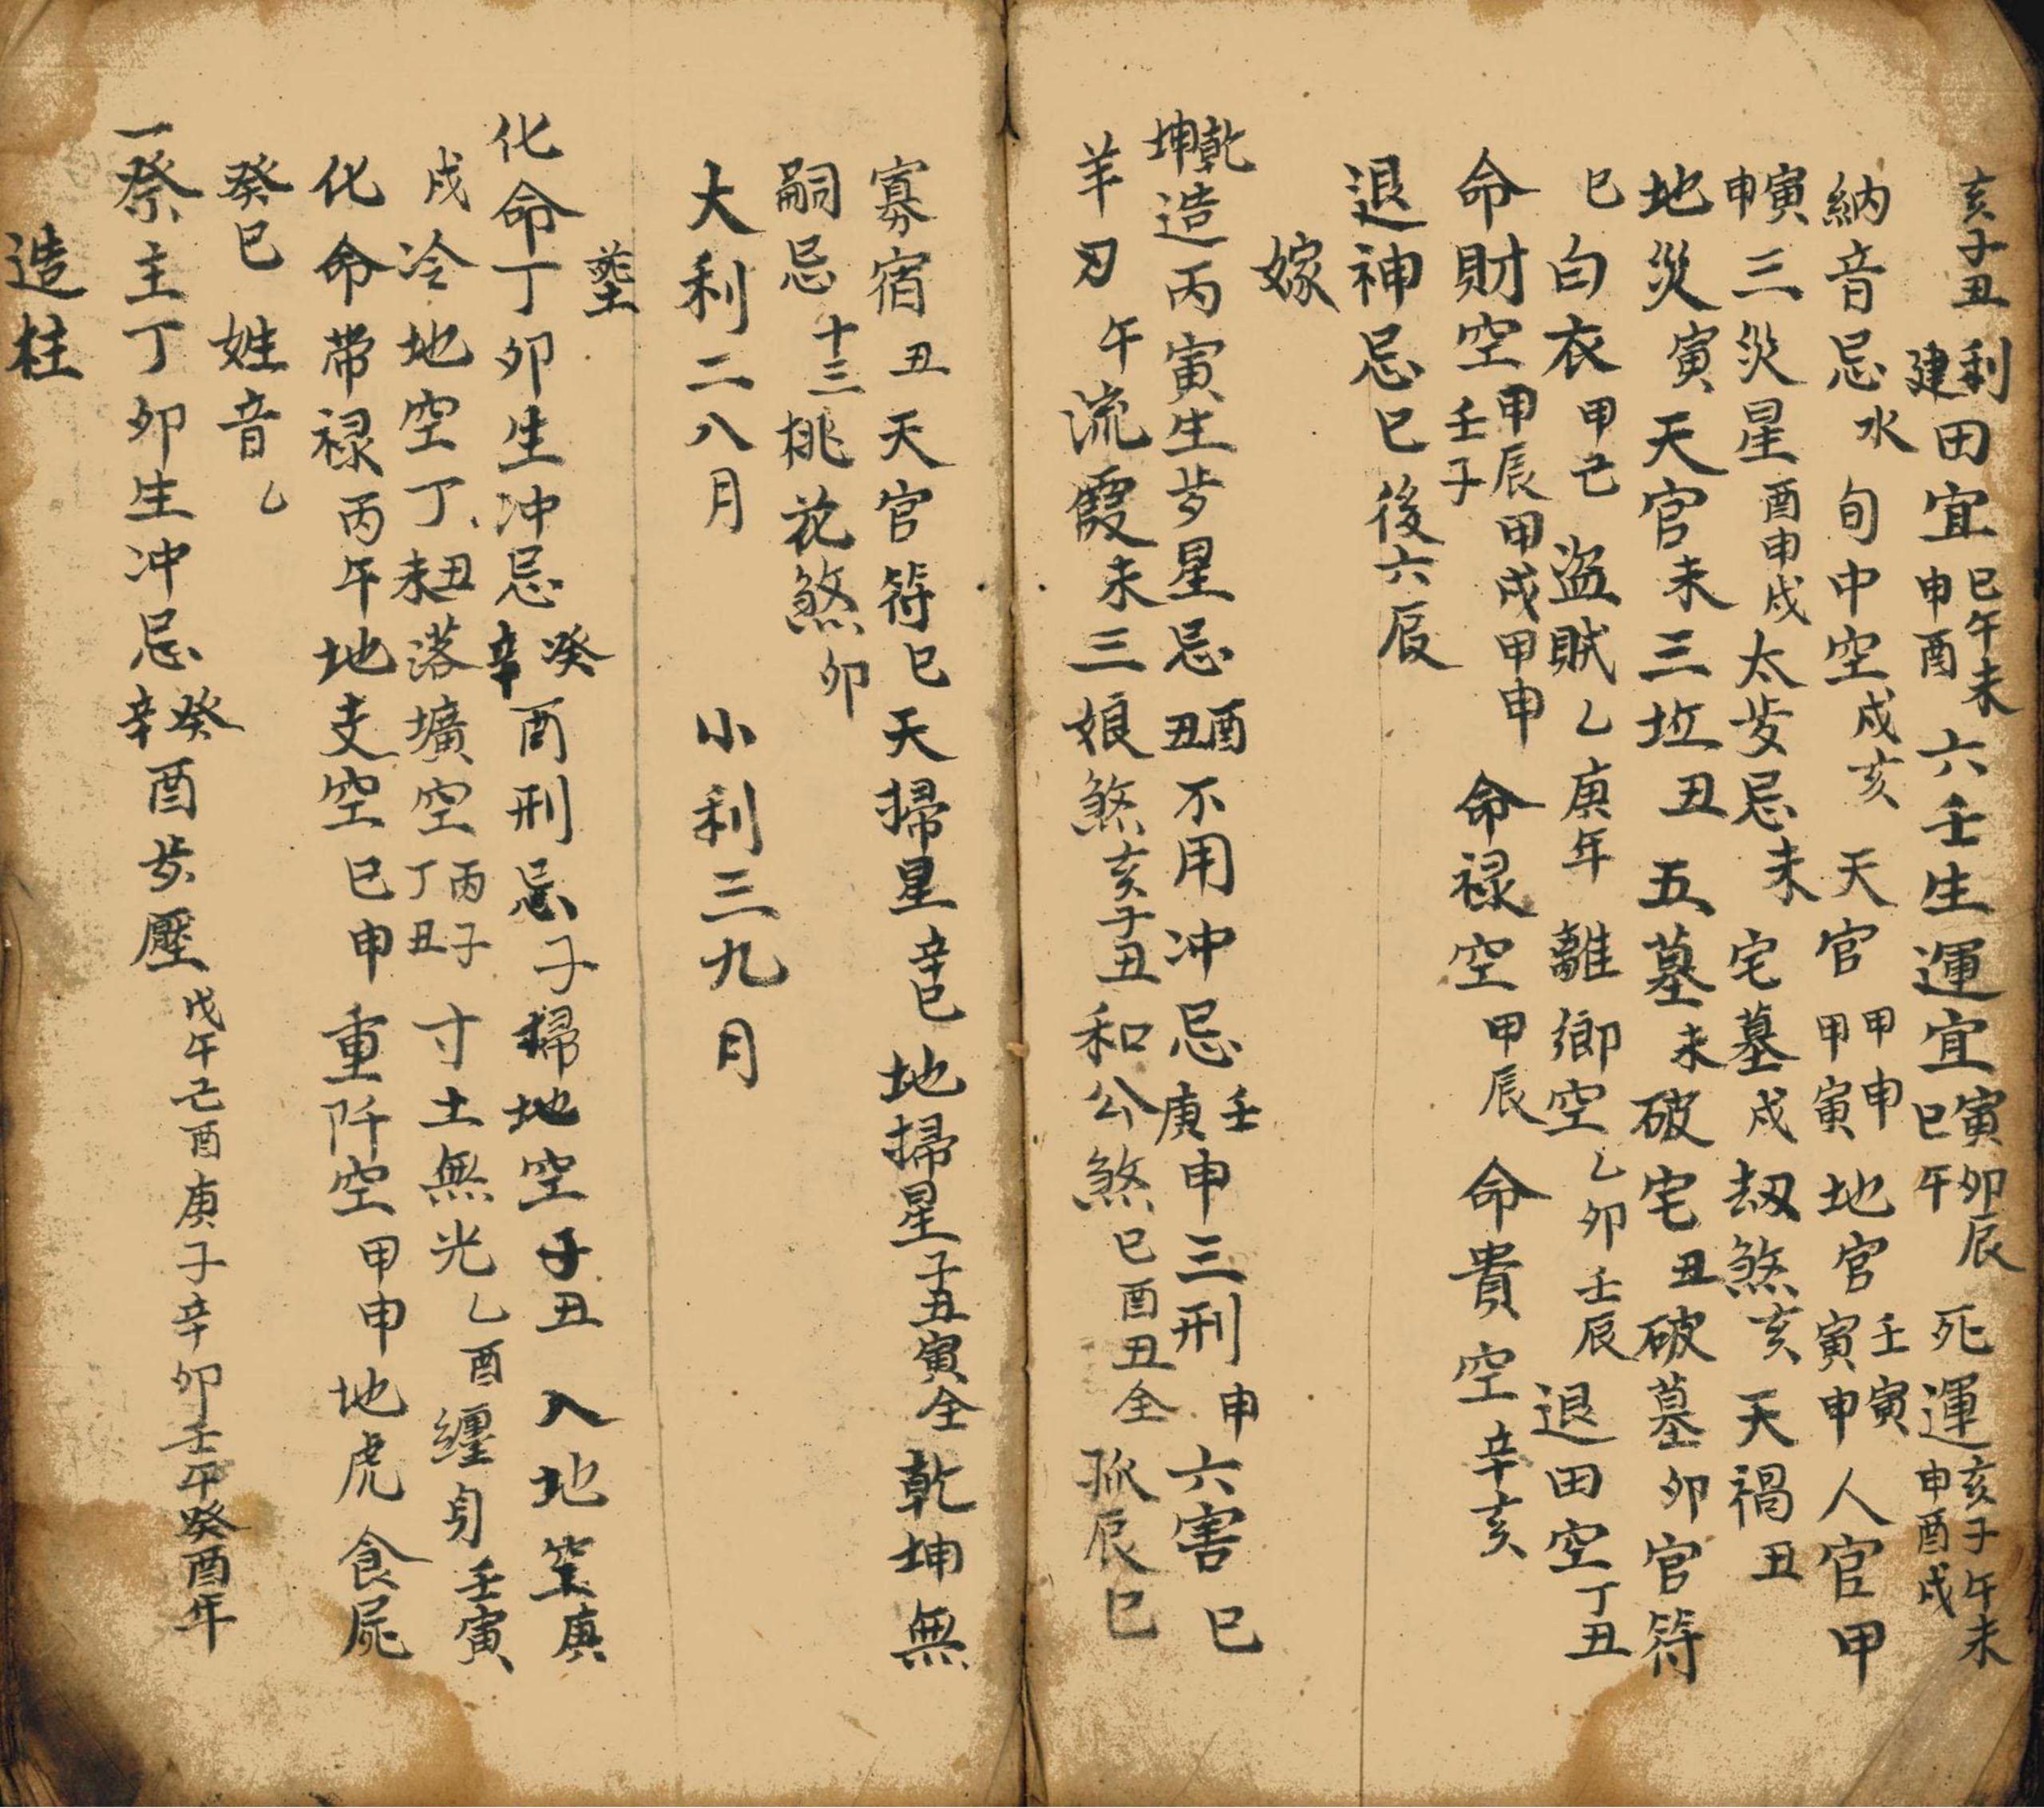 亥子丑利建田宜巳午未申酉六壬生運宜寅卯辰巳午死運亥子午未申酉戌
納音忌水旬中空戌亥天官甲申甲寅地官壬寅寅申人官甲
寅申三災星酉申戌太岁忌未宅墓戌劫煞亥天禍丑
地災寅天官未三坵丑五墓未破宅丑破墓卯官符
巳白衣甲己盗賊乙庚年離鄉空乙卯壬辰退田空丁丑
命財空甲辰甲戌甲申壬子命禄空甲辰命貴空辛亥
退神忌巳後六辰
嫁
乾坤造丙寅生岁星忌酉丑不用冲忌壬庚申三刑申六害巳
羊刃午流霞未三娘煞亥子丑和公煞巳酉丑全孤辰巳
寡宿丑天官符巳天掃星辛巳地掃星子丑寅全乾坤無
嗣忌十三桃花煞卯
大利二八月小利三九月
塟
化命丁卯生冲忌癸辛酉刑忌子掃地空子丑入地空庚
戌冷地空丁丑未落壙空丙子丁丑寸土無光乙酉纏身壬寅
化命带禄丙午地支空巳申重阡空甲申地虎食屍
癸巳姓音乙
一祭主丁卯生冲忌癸辛酉岁壓戊午己酉庚子辛卯壬午癸酉年
造柱